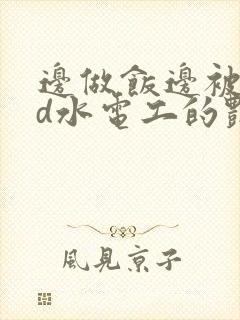 邊做飯邊被
d水電工的
風見京子